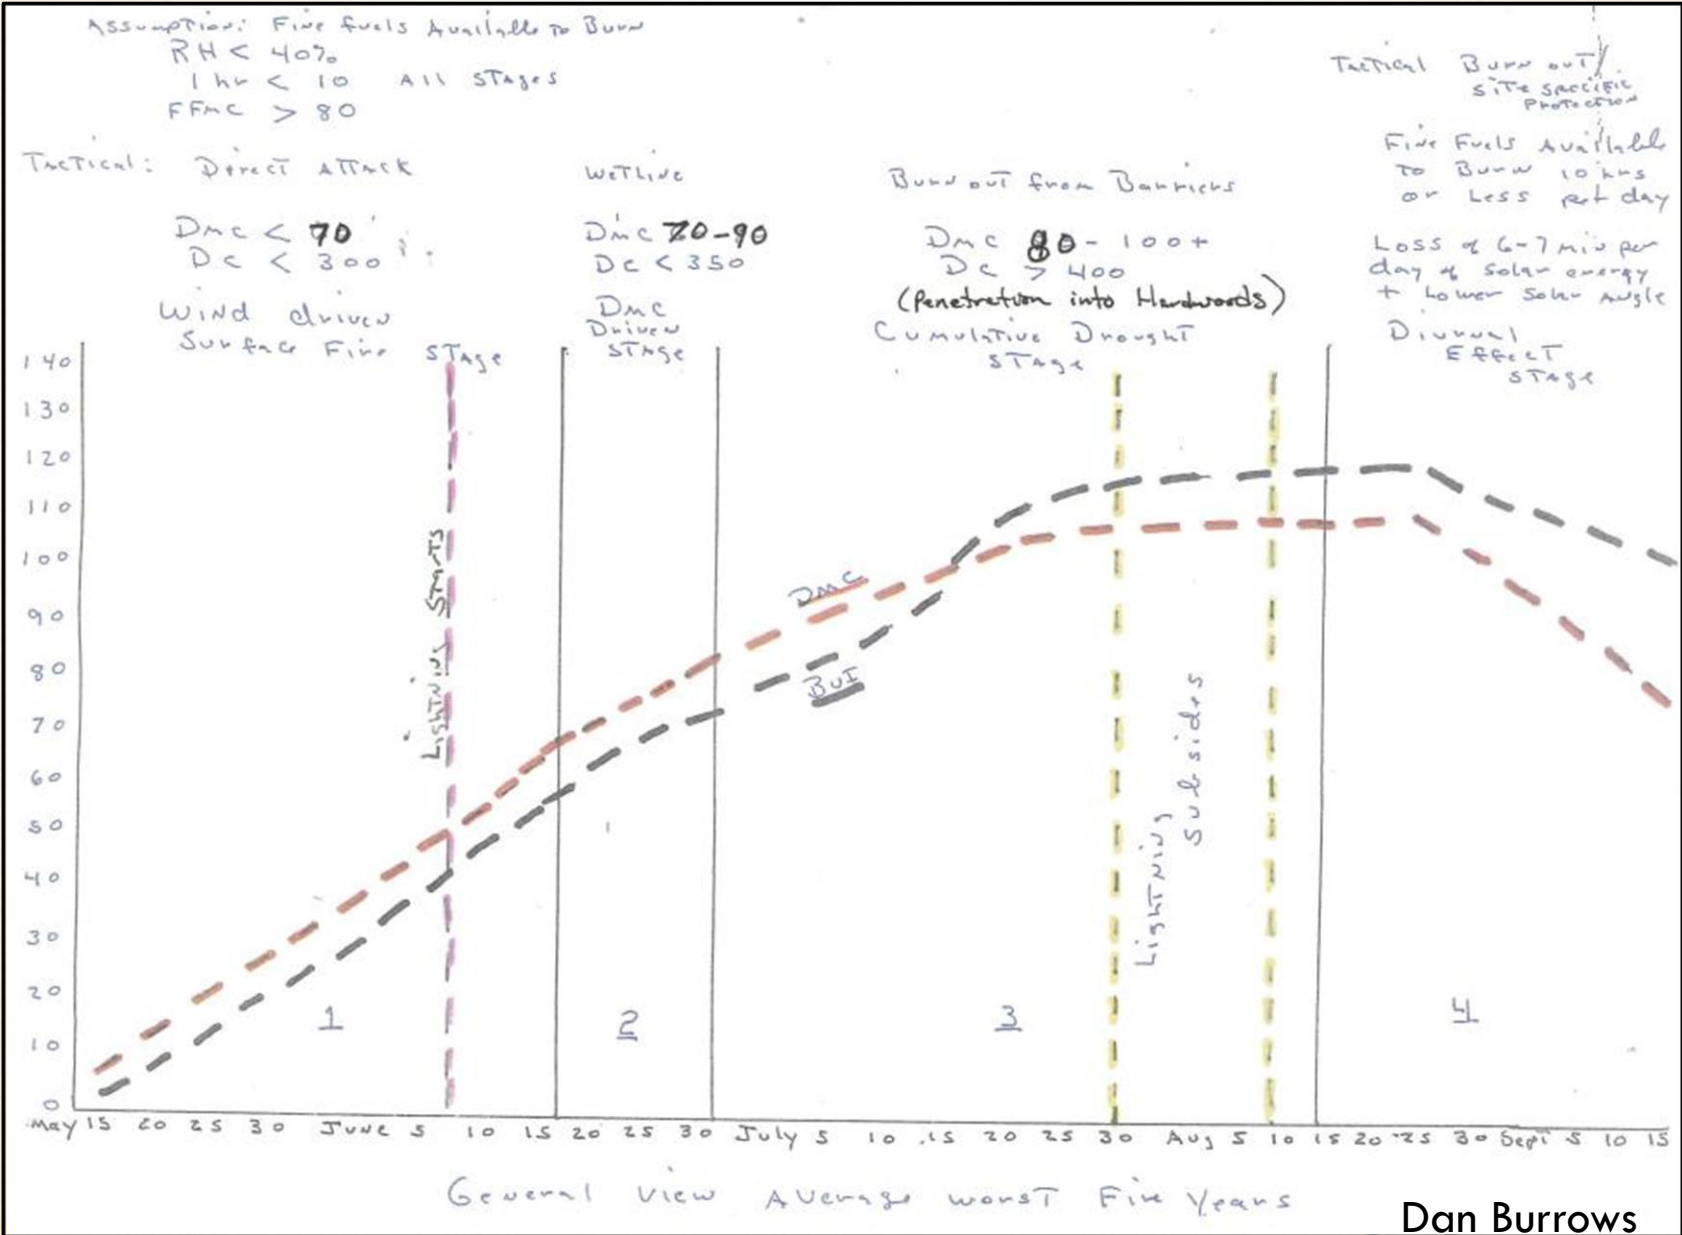 Assumption: Fine fuels Available to Burn
RH < 40%
1 hr < 10 All Stages
FFMC > 80
Tactical: Direct Attack
DMC < 70
DC < 300
Wind driven
Surface Fire Stage
Wetline
DMC 70-90
DC < 350
DMC
Driven
Stage
Burn out from Barriers
DMC 80-100+
DC > 400
(Penetration into Hardwoods)
Cumulative Drought
Stage
Tactical Burn out/
Site Specific
Protection
Fine Fuels Available
to Burn 10 hrs
or Less per day
Loss of 6-7 min per
day of Solar energy
+ Lower Solar Angle
Diurnal
Effect
Stage
140
130
120
110
100
90
80
70
60
50
40
30
20
10
0
Lightning Starts
DMC
BUI
Lightning
Subsides
1
2
3
4
May 15 20 25 30 June 5 10 15 20 25 30 July 5 10 15 20 25 30 Aug 5 10 15 20 25 30 Sept 5 10 15
General View Average Worst Fire Years
Dan Burrows